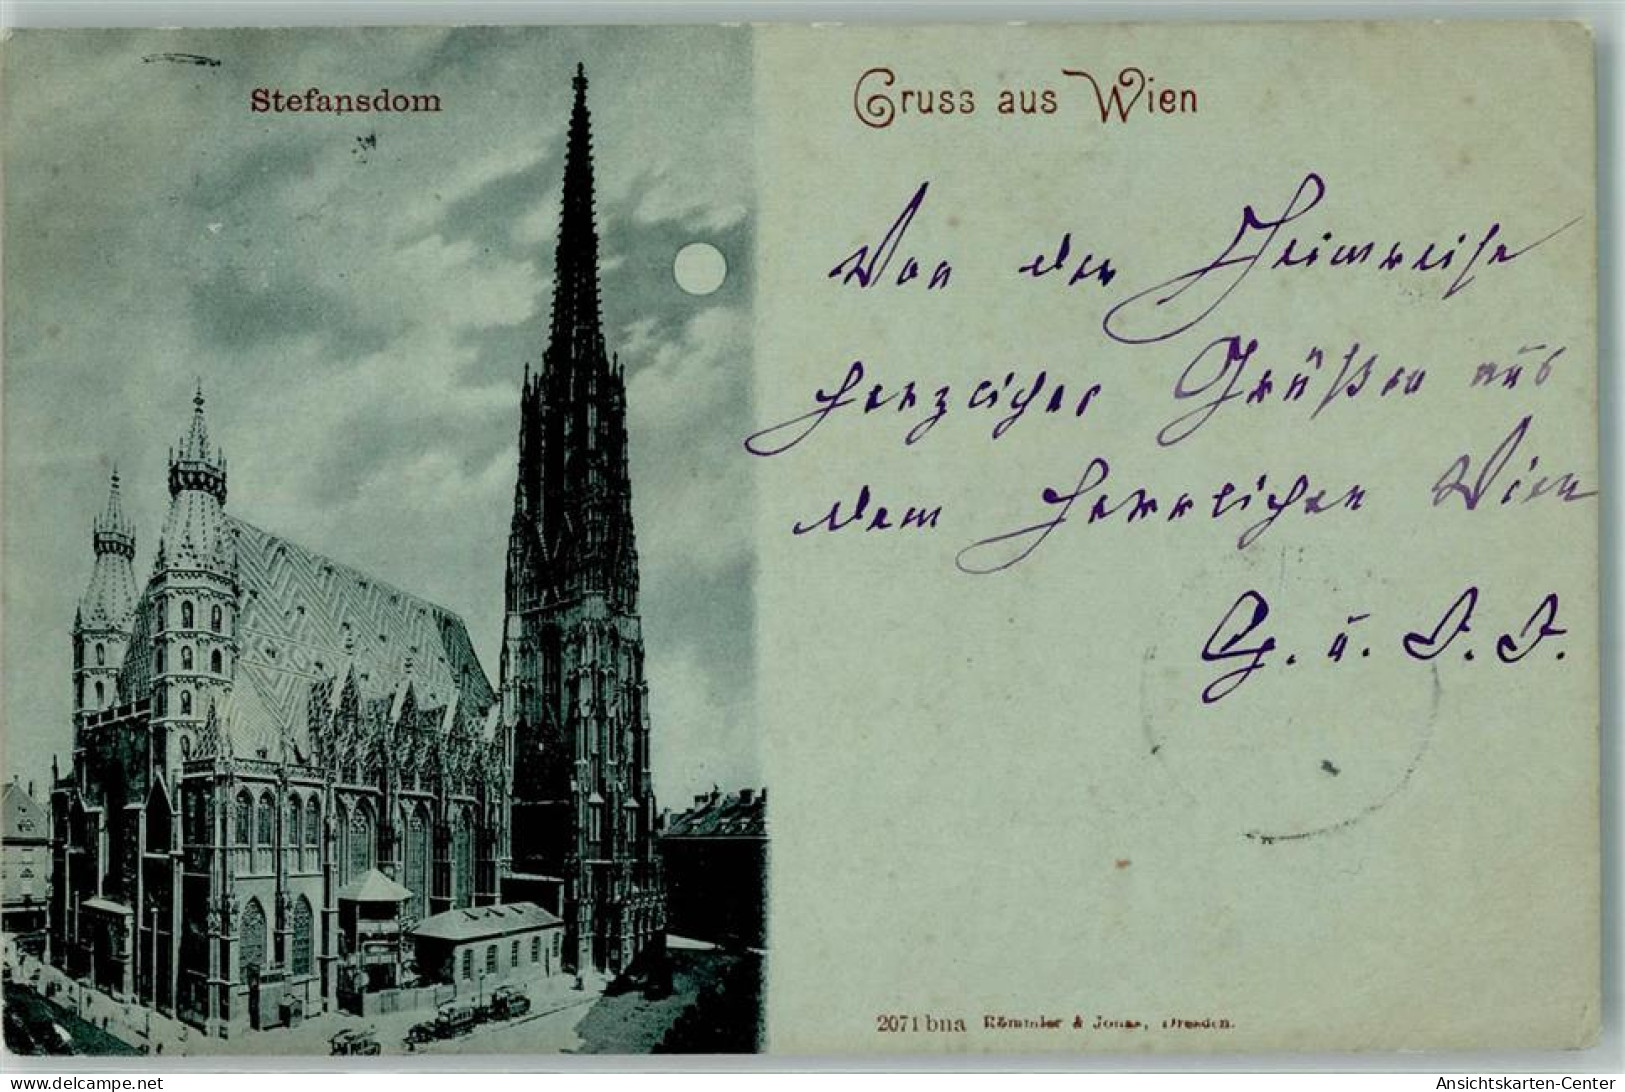 Stefansdom
Gruss aus Wien
Von der Heimreise
herzliche Grüßen aus
dem herrlichen Wien
G. u. J. J.
2071 bna Römmler & Jonas, Dresden.
Ansichtskarten-Center